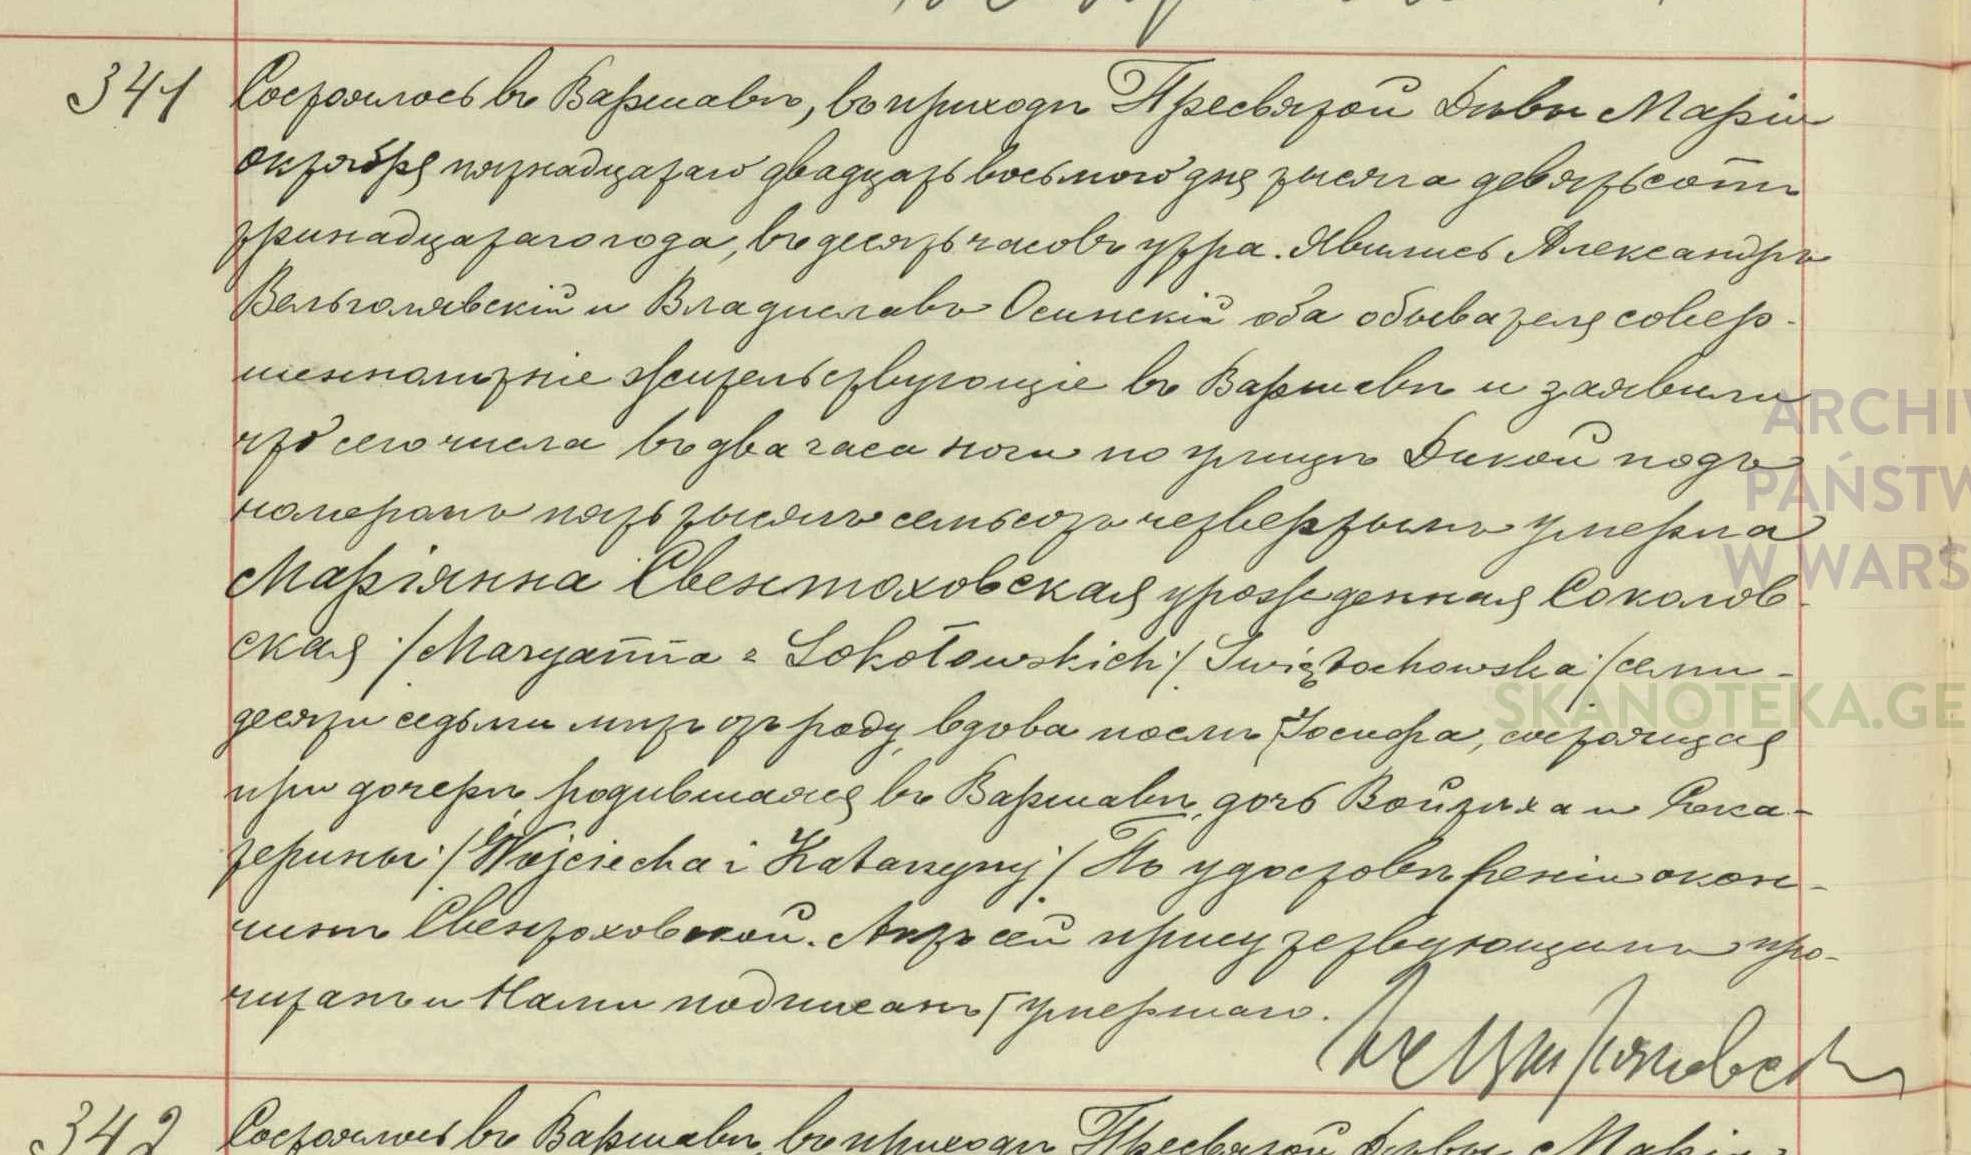 341
Состоялось въ Варшавѣ, въ приходѣ Пресвятой Дѣвы Маріи
октября пятнадцатаго двадцать восьмого дня тысяча девятьсотъ
тринадцатаго года, въ десять часовъ утра. Явились Александръ
Вельголявскій и Владиславъ Осинскій оба обыватели совер-
шеннолѣтніе жительствующіе въ Варшавѣ и заявили
что сего числа въ два часа ночи по улицѣ Дикой подъ
номеромъ пять тысячъ семьсотъ четвертымъ умерла
Маріянна Свентоховская урожденная Соколов-
ская /Maryanna z Sokołowskich/ Świętochowska/ семи-
десяти седьми лѣтъ отъ роду, вдова послѣ Іосифа, состоящая
при дочери, родившаяся въ Варшавѣ, дочь Войцѣха и Ека-
терины /Wojciecha i Katarzyny/ По удостовѣреніи окон-
чинѣ Свентоховской. Актъ сей присутствующимъ про-
читанъ и Нами подписанъ
342
Состоялось въ Варшавѣ, въ приходѣ Пресвятой Дѣвы Маріи
ARCHIW
PAŃSTW
W WARS
SKANOTEKA.GE